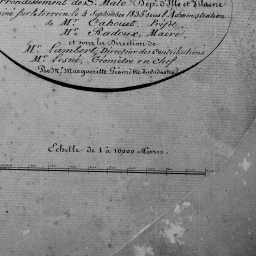 rrondissement de S. Malo Dép.t d'Ille et Vilaine
miné sur le terrein le 4 Septembre 1835 sous l'Administration
de M.r Cahouet, Préfet,
M.r Radoux, Maire,
et sous la Direction de
M.r Lambert, Directeur des Contributions
M.r Lesné, Géomètre en Chef
Par M.r Marguerette Géomètre du Cadastre
Echelle de 1 à 10000 Mètres.